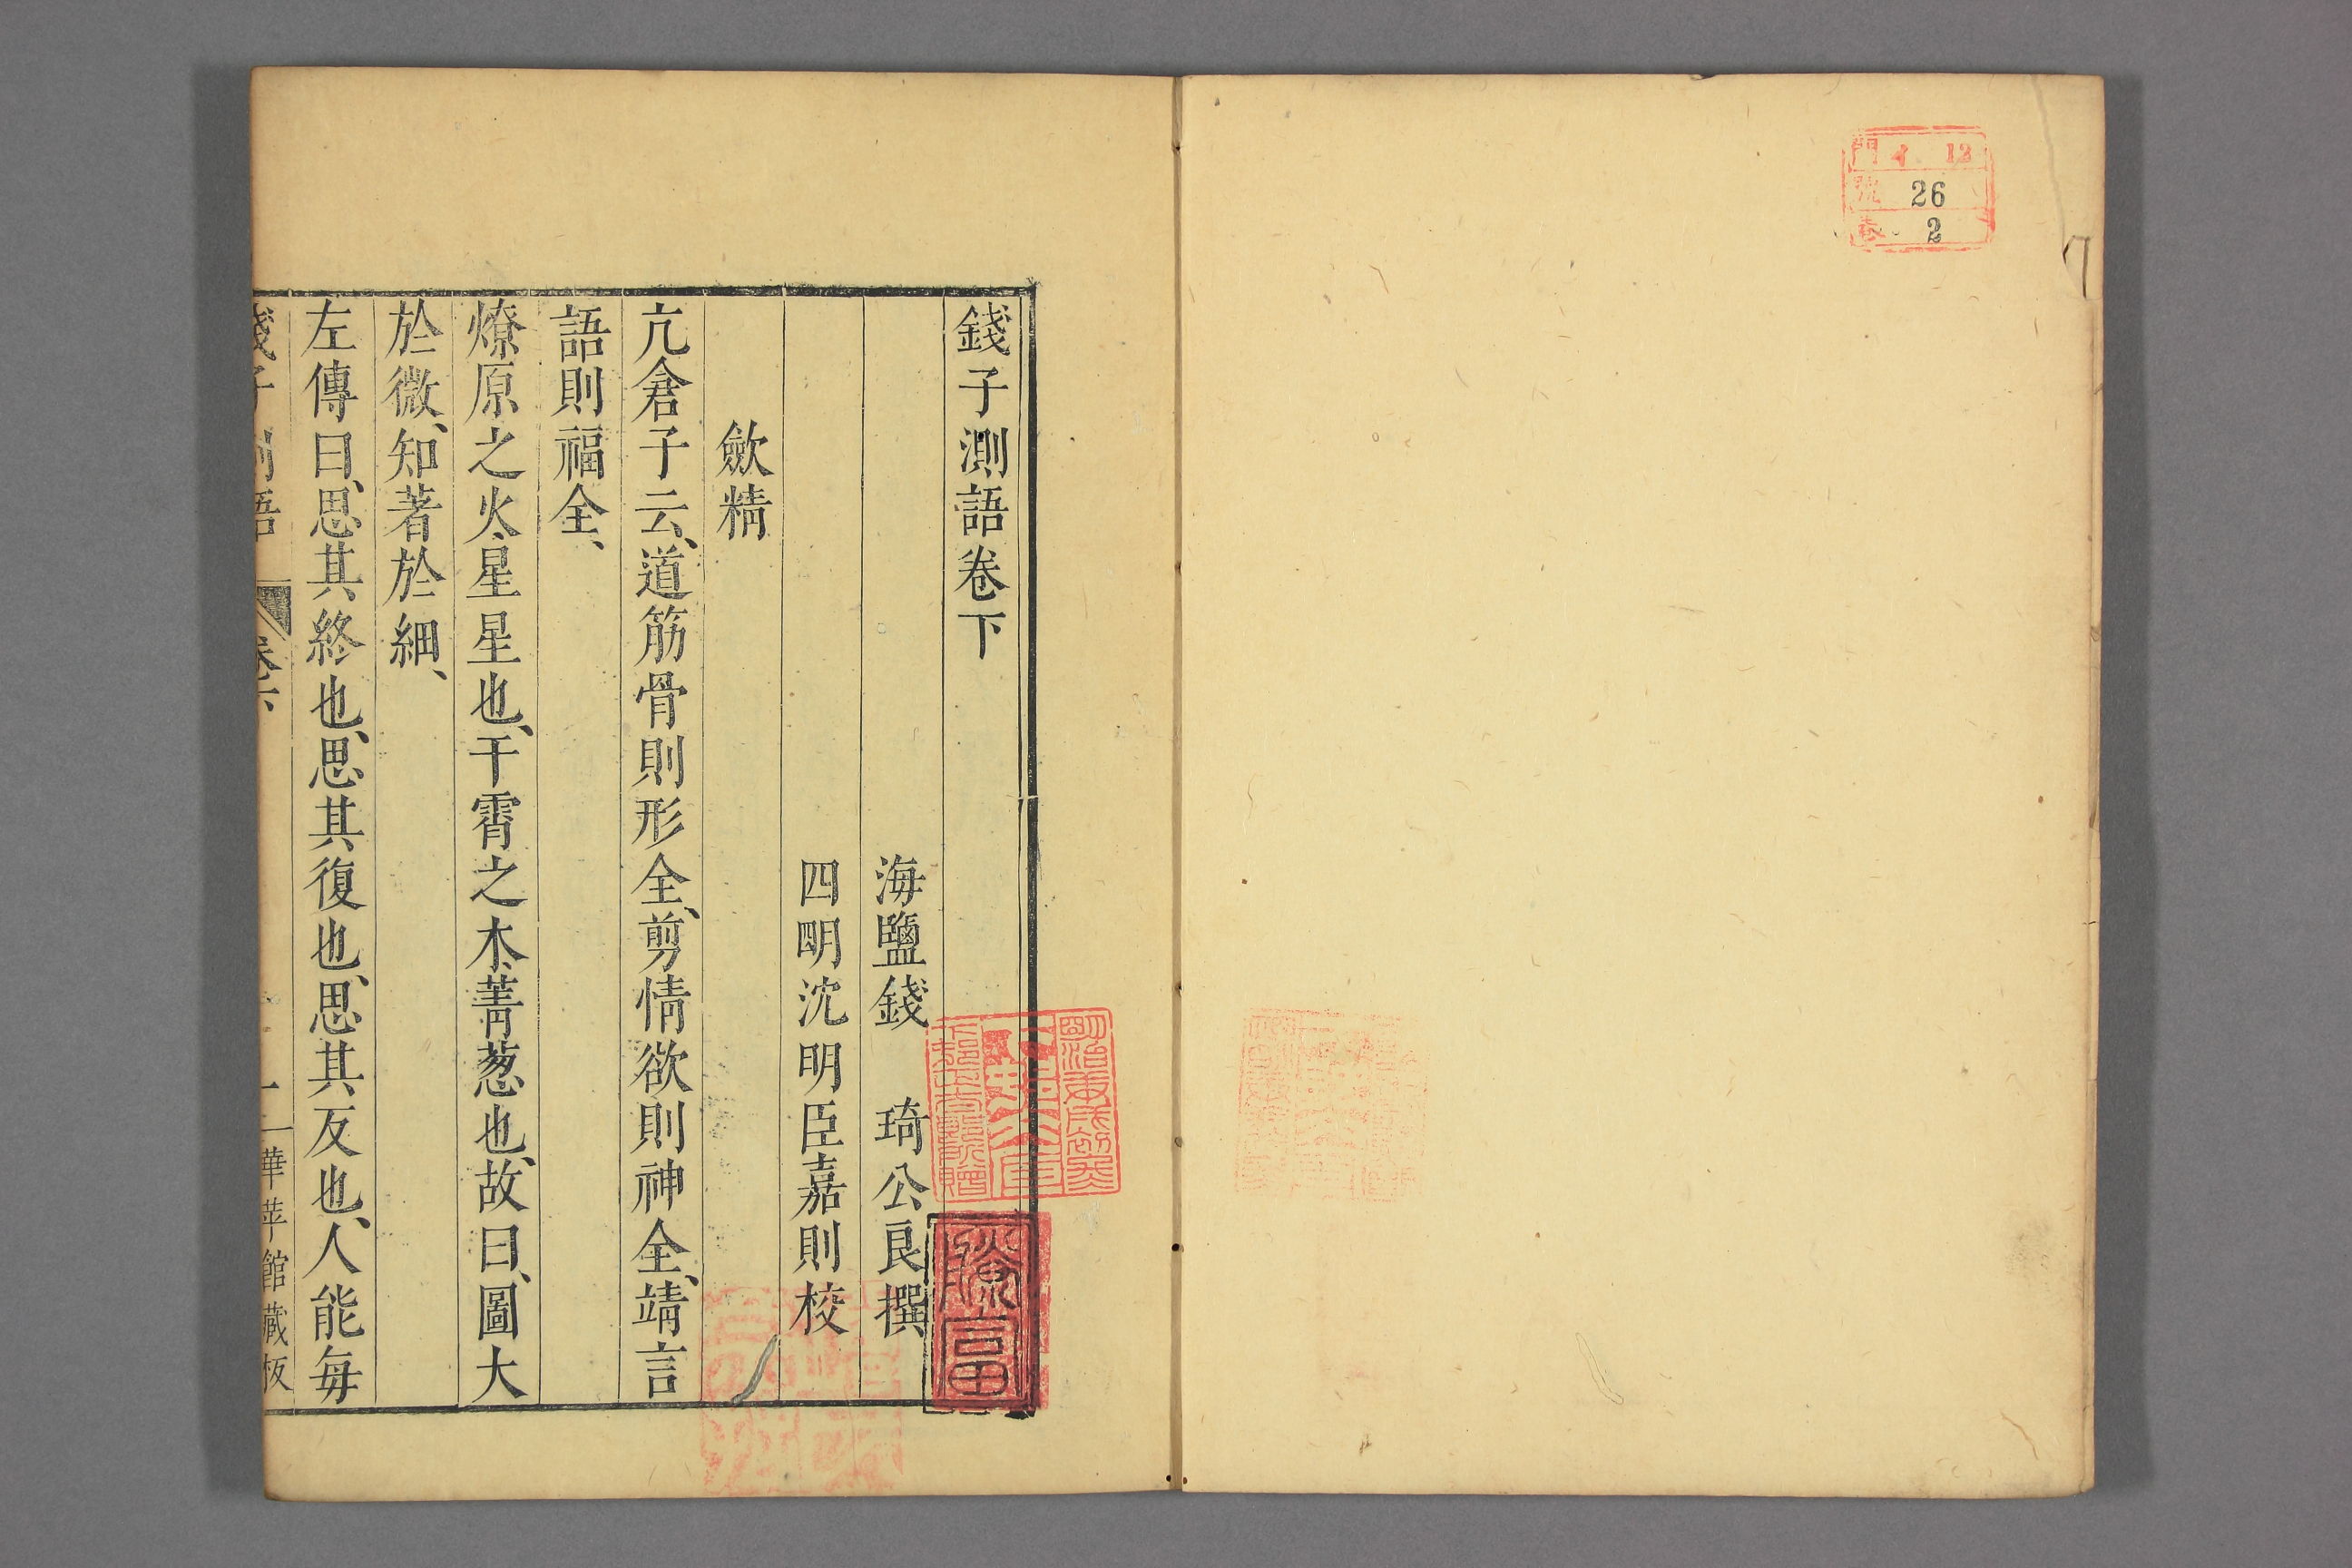 門 イ 12
號 26
卷 2
錢子測語卷下
海鹽錢 琦公良撰
四明沈明臣嘉則校
歛精
亢倉子云、道筋骨則形全、剪情欲則神全、靖言
語則福全、
燎原之火、星星也、干霄之木、菁葱也、故曰、圖大
於微、知著於細、
左傳曰、思其終也、思其復也、思其反也、人能每
錢子測語 卷下 一 華萃館藏板